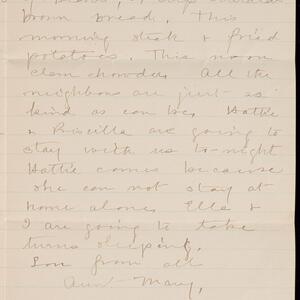 brown bread. This
morning steak & fried
potatoes. This noon
clam chowder. All the
neighbors are just as
kind as can be. Hattie
& Priscilla are going to
stay with us to-night
Hattie comes because
she can not stay at
home alone. Ella &
I are going to take
turns sleeping.
Love from all
Aunt Mary.